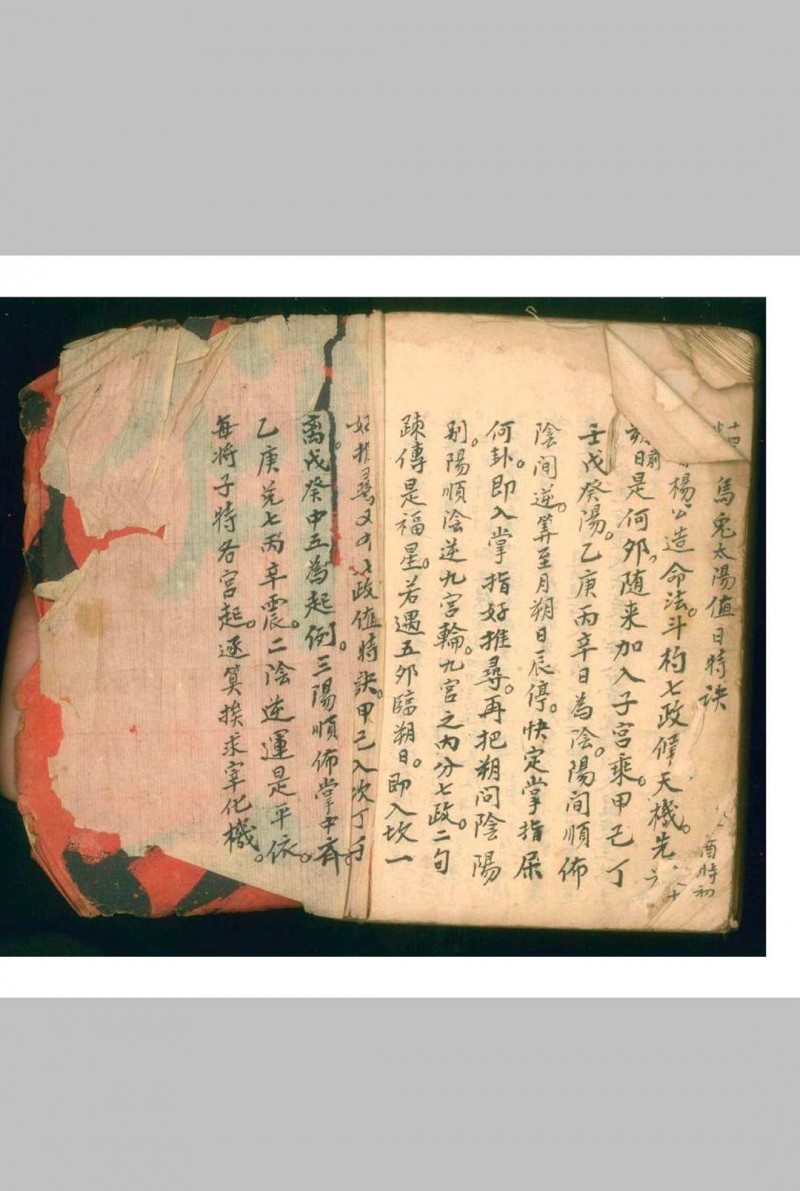 烏兔太陽值日時訣
楊公造命法。斗杓七政候天機。先
日是何夘,随来加入子宮乘。甲己丁
壬戊癸陽。乙庚丙辛日為陰。陽間順佈
陰間逆。算至月朔日辰停。快定掌指屎
何卦。即入掌指好推尋。再把朔问陰陽
别。陽順陰逆九宮輪。九宮之内分七政。二句
踈傳是福星。若遇五夘臨朔日。即入坎一
好推尋又
七政值時訣。甲己入次丁壬
离。戊癸中五為起例。三陽順佈掌中齊。
乙庚兑七丙辛震。二陰逆運是平依。
每将子時各宮起。逐算挨求宰化機。
酉時初